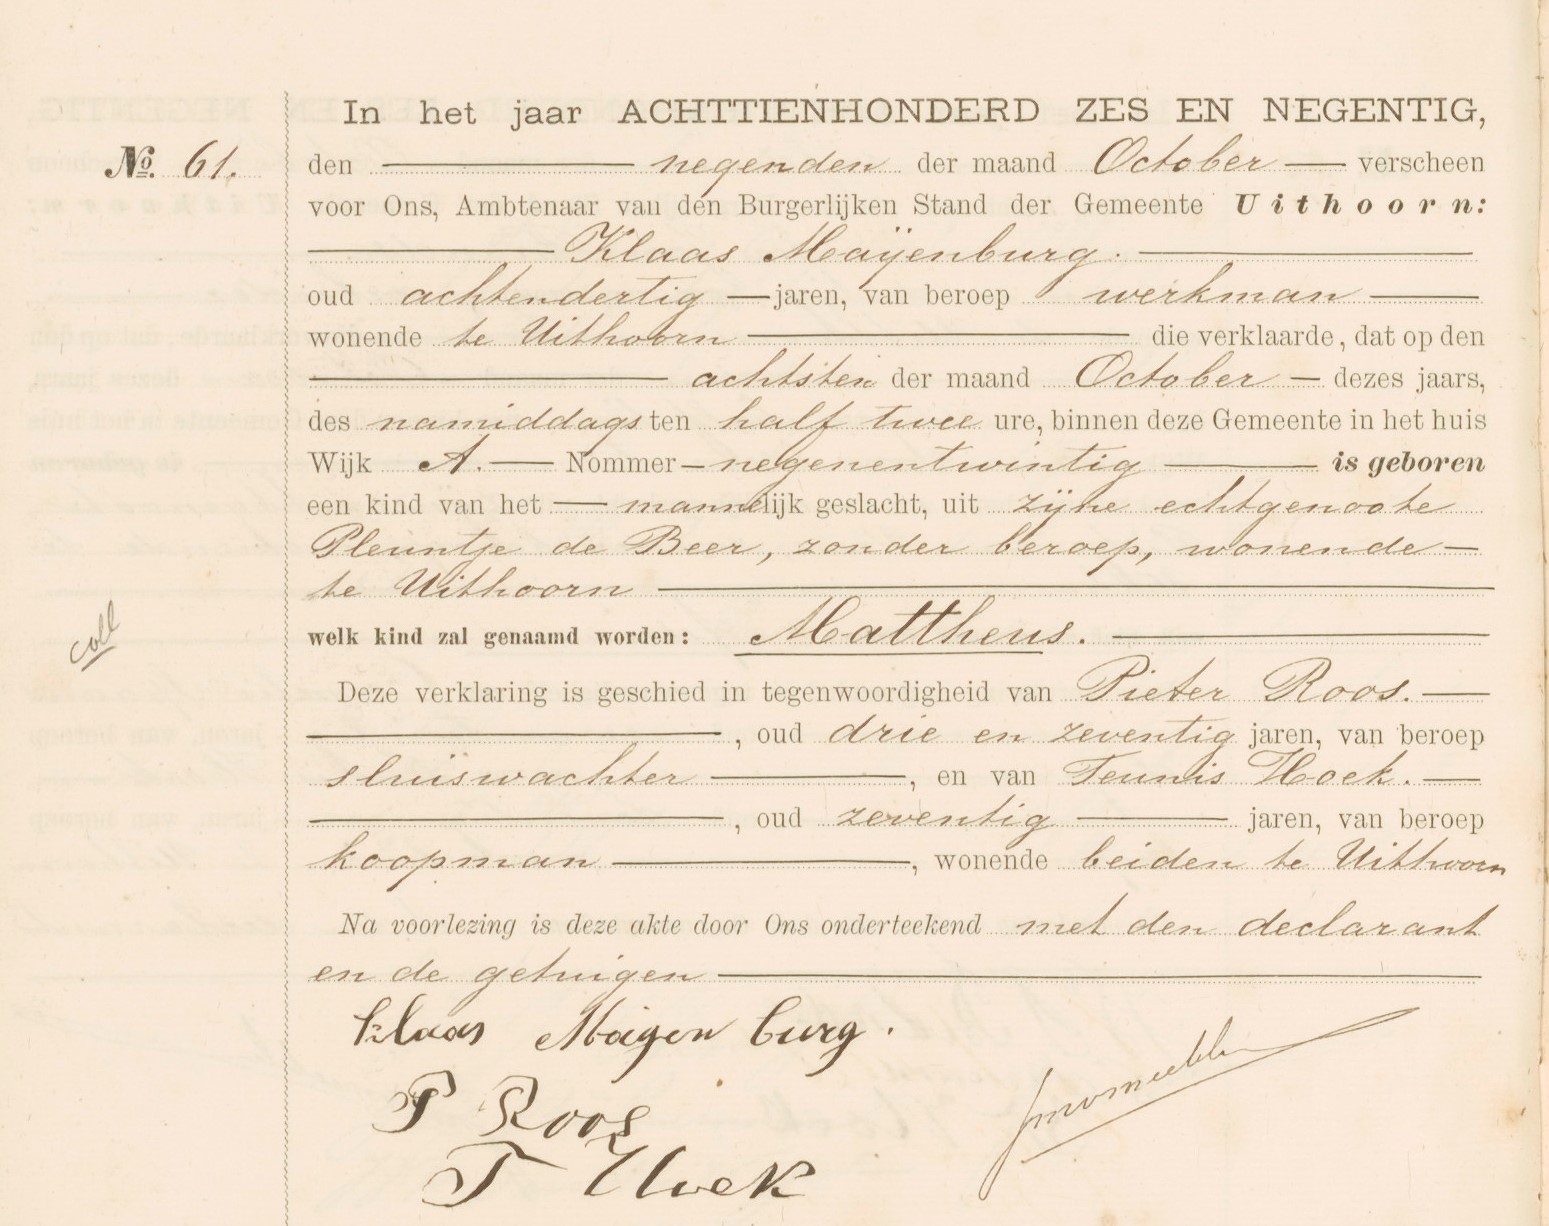 In het jaar ACHTTIENHONDERD ZES EN NEGENTIG,
No. 61.
den negenden der maand October verscheen
voor Ons, Ambtenaar van den Burgerlijken Stand der Gemeente Uithoorn:
Klaas Maÿenburg.
oud achtendertig jaren, van beroep werkman
wonende te Uithoorn die verklaarde, dat op den
achtsten der maand October dezes jaars,
des namiddags ten half twee ure, binnen deze Gemeente in het huis
Wijk A. Nommer negenentwintig is geboren
een kind van het mannelijk geslacht, uit zijne echtgenoote
Pleuntje de Beer, zonder beroep, wonende
te Uithoorn
coll
welk kind zal genaamd worden: Mattheus.
Deze verklaring is geschied in tegenwoordigheid van Pieter Roos.
, oud drie en zeventig jaren, van beroep
sluiswachter , en van Teunis Hoek.
, oud zeventig jaren, van beroep
koopman , wonende beiden te Uithoorn
Na voorlezing is deze akte door Ons onderteekend met den declarant
en de getuigen
Klaas Maigen burg.
P Roos
T Hoek